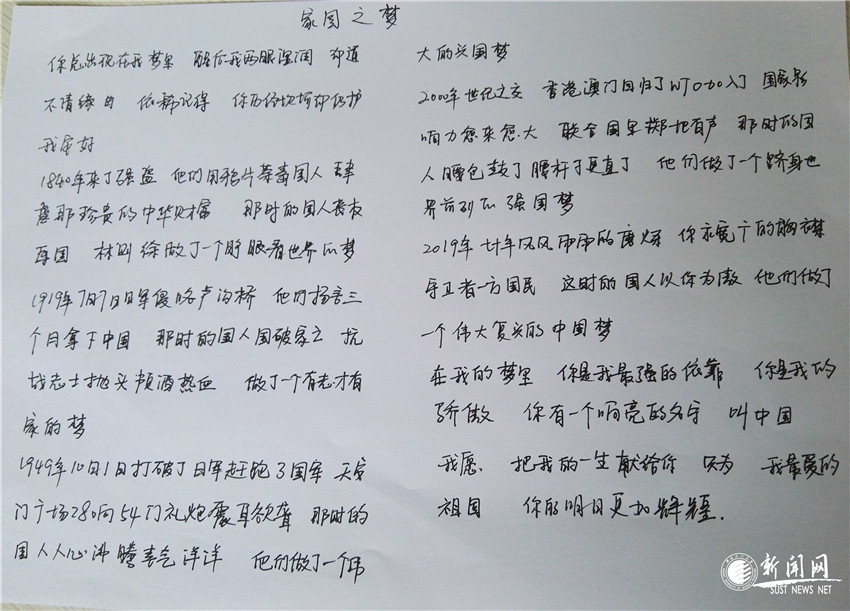 家国之梦
你总出现在我梦里 醒后我两眼湿润 却道
不清缘由 依稀记得 你历经坎坷却仍护
我安好
1840年来了强盗 他们用鸦片荼毒国人 肆
虐那珍贵的中华财富 那时的国人丧权
辱国 林则徐做了一个睁眼看世界的梦
1919年7月7日日军侵略卢沟桥 他们扬言三
个月拿下中国 那时的国人国破家亡 抗
战志士抛头颅洒热血 做了一个有志才有
家的梦
1949年10月1日打破了日军赶跑了国军 天安
门广场28响54门礼炮震耳欲聋 那时的
国人人心沸腾喜气洋洋 他们做了一个伟
大的兴国梦
2000年世纪之交 香港澳门回归了WTO加入了 国家影
响力愈来愈大 联合国里掷地有声 那时的国
人腰包鼓了腰杆子更直了 他们做了一个跻身世
界前列的强国梦
2019年 廿年风风雨雨的磨炼 你宽广的胸襟
守卫着一方国民 这时的国人以你为傲 他们做了
一个伟大复兴的中国梦
在我的梦里 你是我最强的依靠 你是我的
骄傲 你有一个响亮的名字 叫中国
我愿 把我的一生献给你 只为 我最爱的
祖国 你的明日更加辉煌.
新闻网
SUST NEWS NET